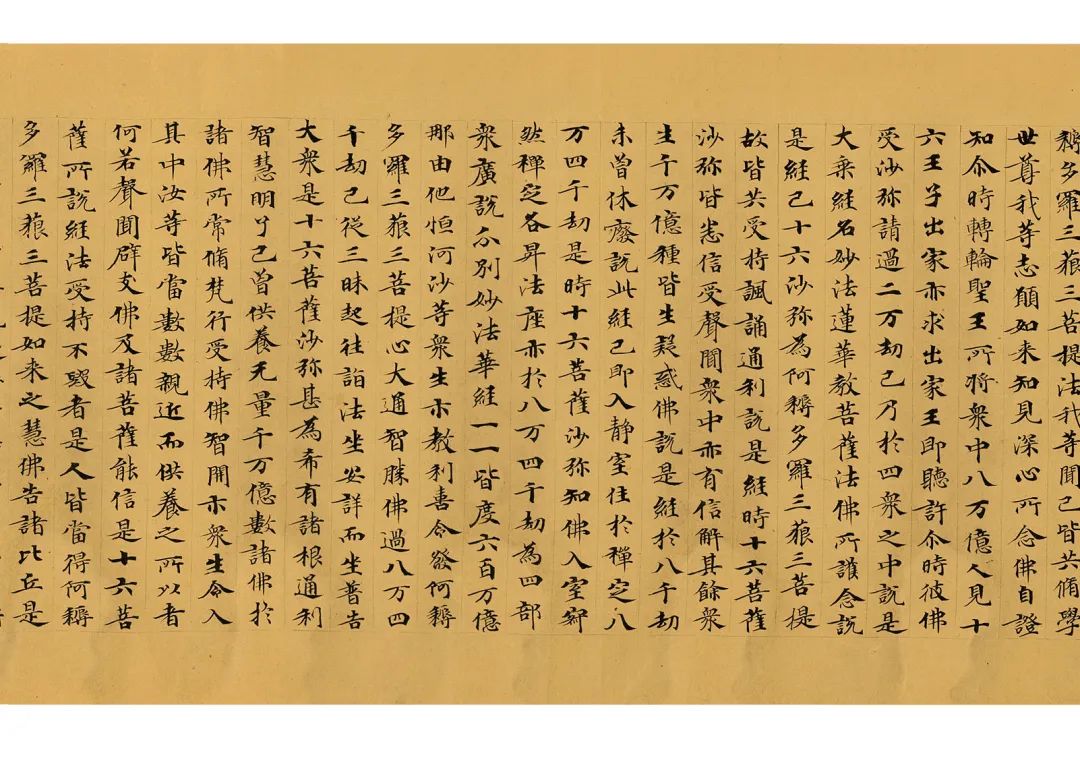 耨多羅三藐三菩提法我等聞已皆共脩學
世尊我等志願如来知見深心所念佛自證
知尒時轉輪聖王所將衆中八万億人見十
六王子出家亦求出家王即聽許尒時彼佛
受沙弥請過二万劫已乃於四衆之中說是
大乘經名妙法蓮華教菩薩法佛所護念說
是經已十六沙弥為阿耨多羅三藐三菩提
故皆共受持諷誦通利說是經時十六菩薩
沙弥皆悉信受聲聞衆中亦有信解其餘衆
生千万億種皆生疑惑佛說是經於八千劫
未曾休癈說此經已即入静室住於禪定八
万四千劫是時十六菩薩沙弥知佛入室寂
然禪定各昇法座亦於八万四千劫為四部
衆廣說分別妙法華經一一皆度六百万億
那由他恒河沙等衆生示教利喜令發阿耨
多羅三藐三菩提心大通智勝佛過八万四
千劫已從三昧起往詣法坐安詳而坐普告
大衆是十六菩薩沙弥甚為希有諸根通利
智慧明了已曾供養无量千万億數諸佛於
諸佛所常脩梵行受持佛智開示衆生令入
其中汝等皆當數數親近而供養之所以者
何若聲聞辟支佛及諸菩薩能信是十六菩
薩所說經法受持不毀者是人皆當得阿耨
多羅三藐三菩提如来之慧佛告諸比丘是